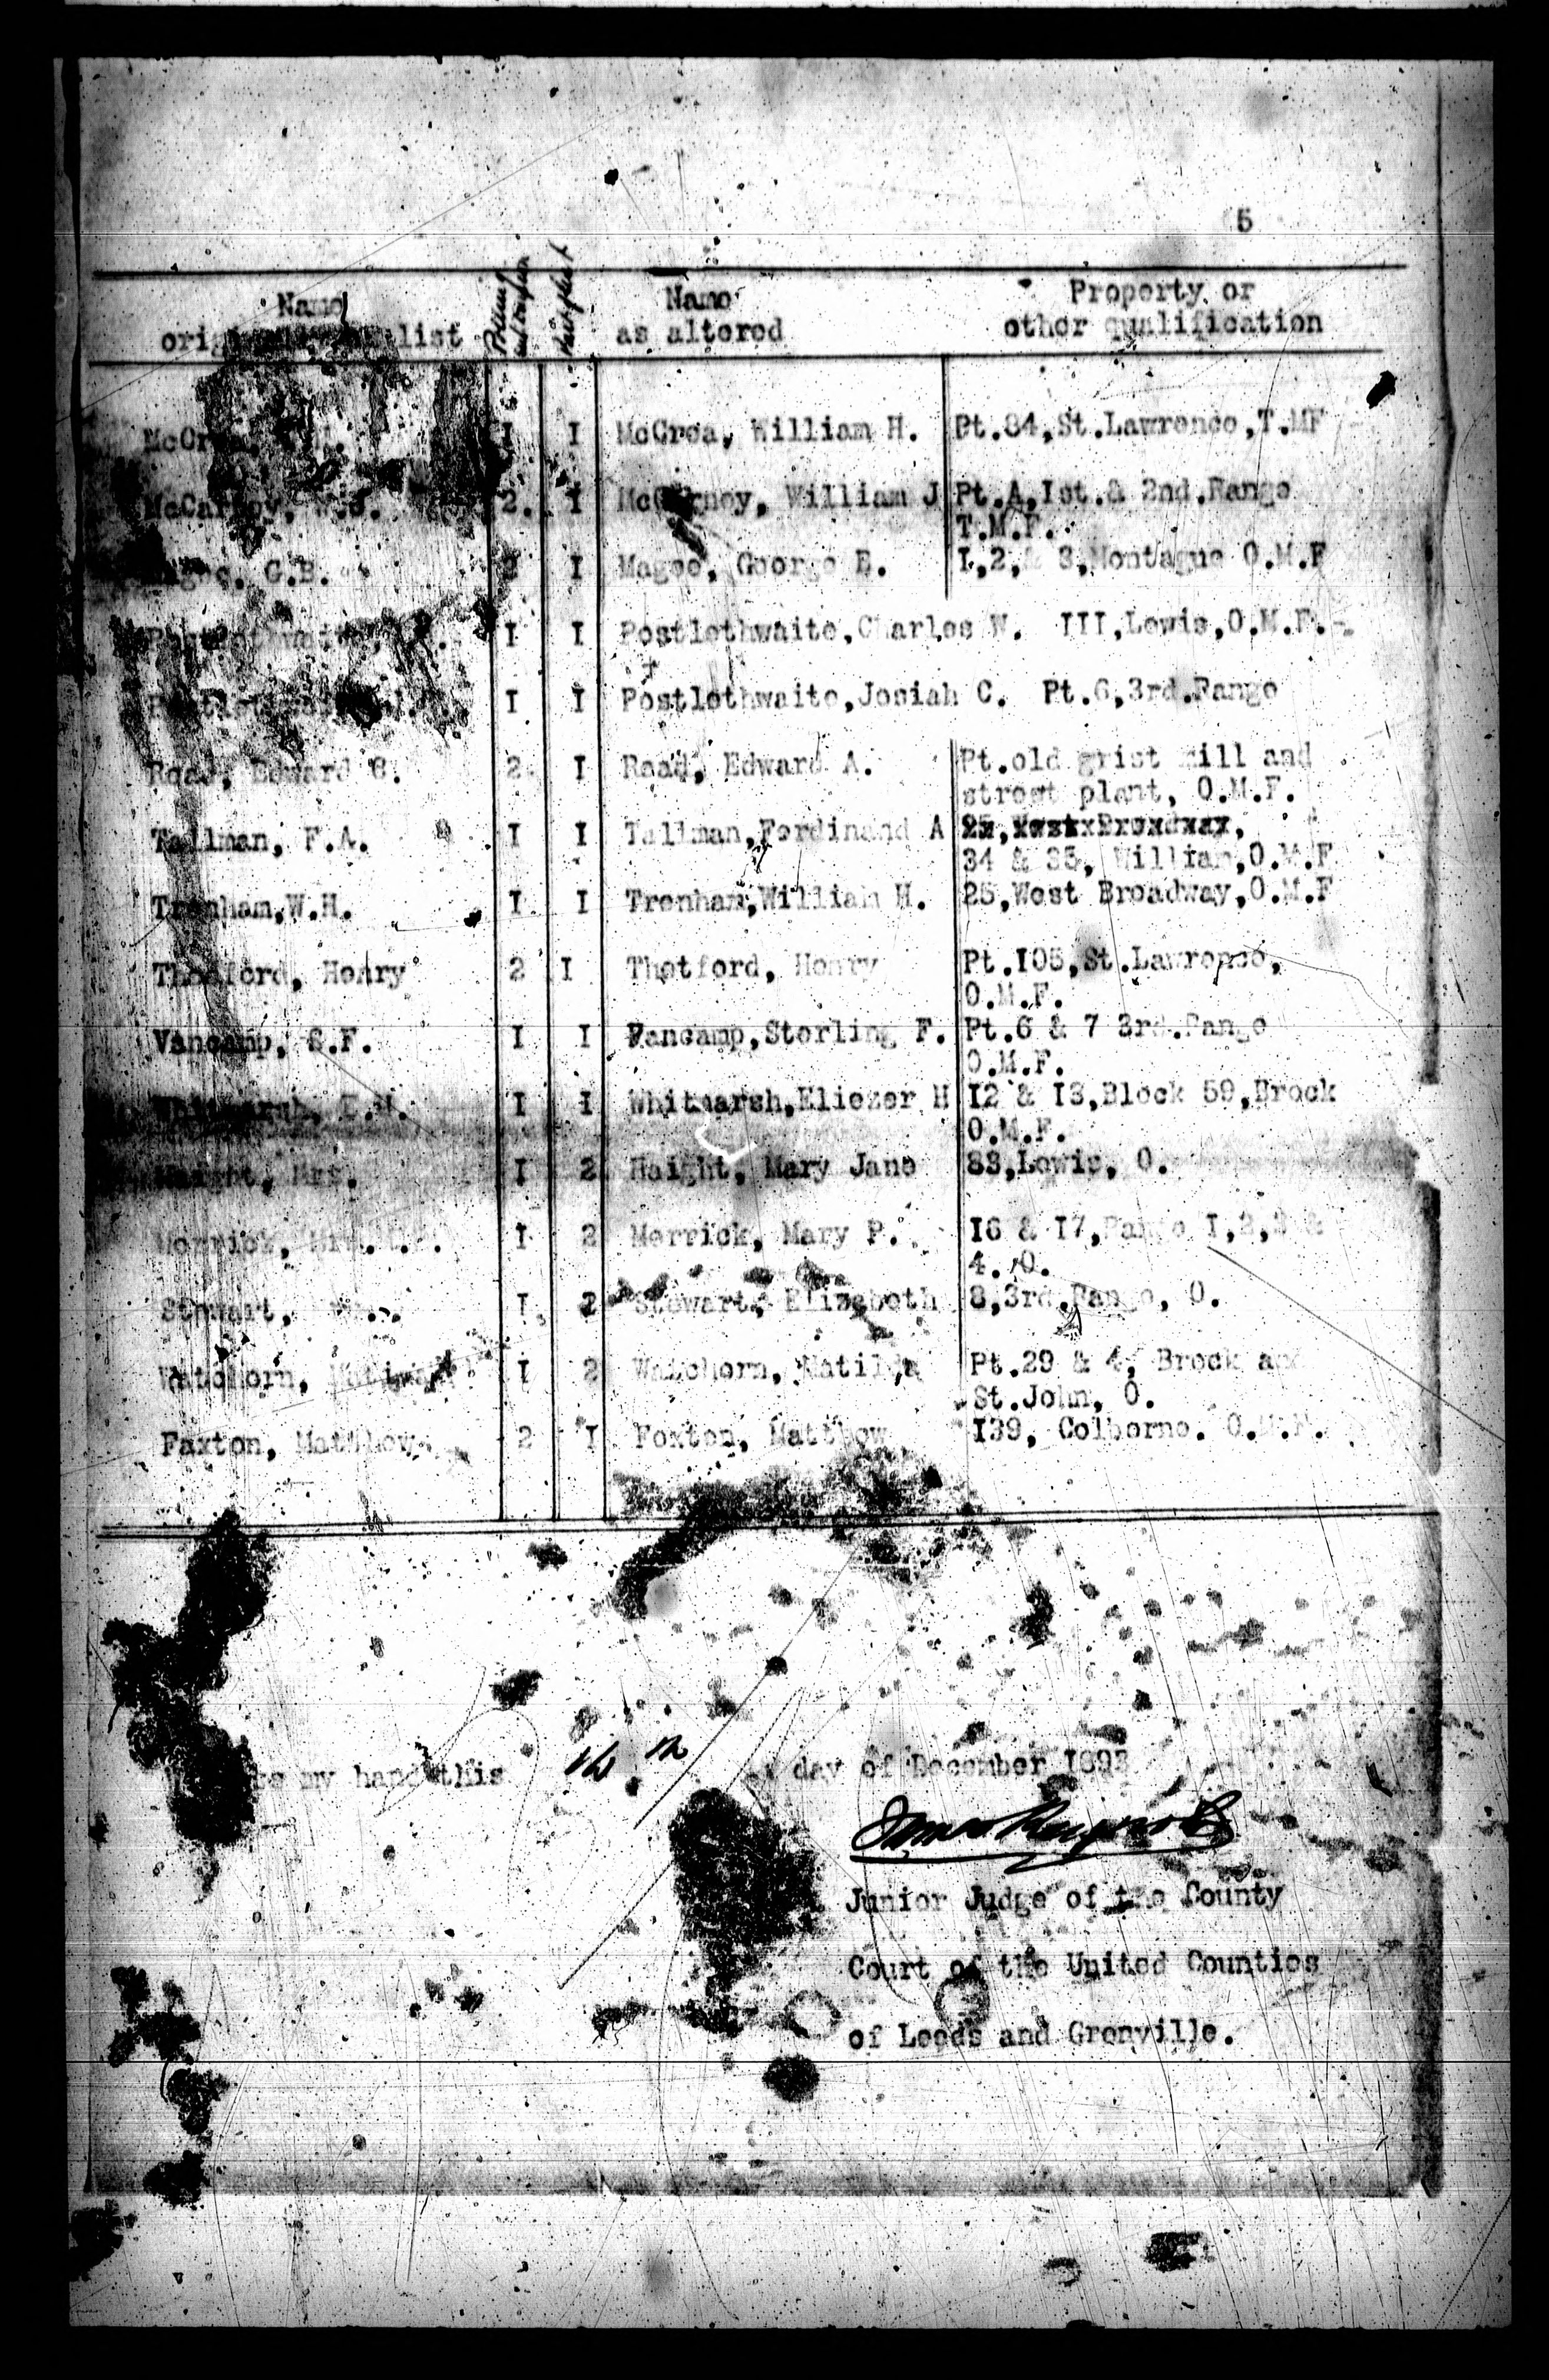 5
Name Name Property or
list as altered other qualification
I I McCrea, William H. Pt.84,St.Lawrence,T.MF
McCarney, W.J. 2. I McCarney, William J Pt.A,Ist.& 2nd.Range
T.M.F.
Magee, G.B. 2 I Magee, George E. I,2,& 3,Montague O.M.F
I I Postlethwaite,Charles W. III,Lewis,O.M.F.
I I Postlethwaite,Josiah C. Pt.6,3rd.Range
Read, Edward 2 I Read, Edward A. Pt.old grist mill and
street plant, O.M.F.
Tallman, F.A. I I Tallman,Ferdinand A
34 & 35, William,O.M.F
Trenham,W.H. I I Trenham,William H. 25,West Broadway,O.M.F
Thetford, Henry 2 I Thetford, Henry Pt.I05,St.Lawrence,
O.M.F.
Vancamp, S.F. I I Vancamp,Sterling F. Pt.6 & 7 3rd.Range
O.M.F.
Whitmarsh, I I Whitmarsh,Eliezer H I2 & I3,Block 59,Brock
O.M.F.
Haight, Mrs. I 2 Haight, Mary Jane 88,Lewis, O.
Merrick, Mrs. I 2 Merrick, Mary P. I6 & I7,Range I,2,3 &
4. O.
Stewart, I 2 Stewart, Elizabeth 8,3rd.Range, O.
Watchorn, I 2 Watchorn, Matilda Pt.29 & 4, Brock and
St.John, O.
Faxton, Matthew 2 I Foxton, Matthew I39, Colborne. O.M.F.
my hand this day of December I893
James Reynolds
Junior Judge of the County
Court of the United Counties
of Leeds and Grenville.